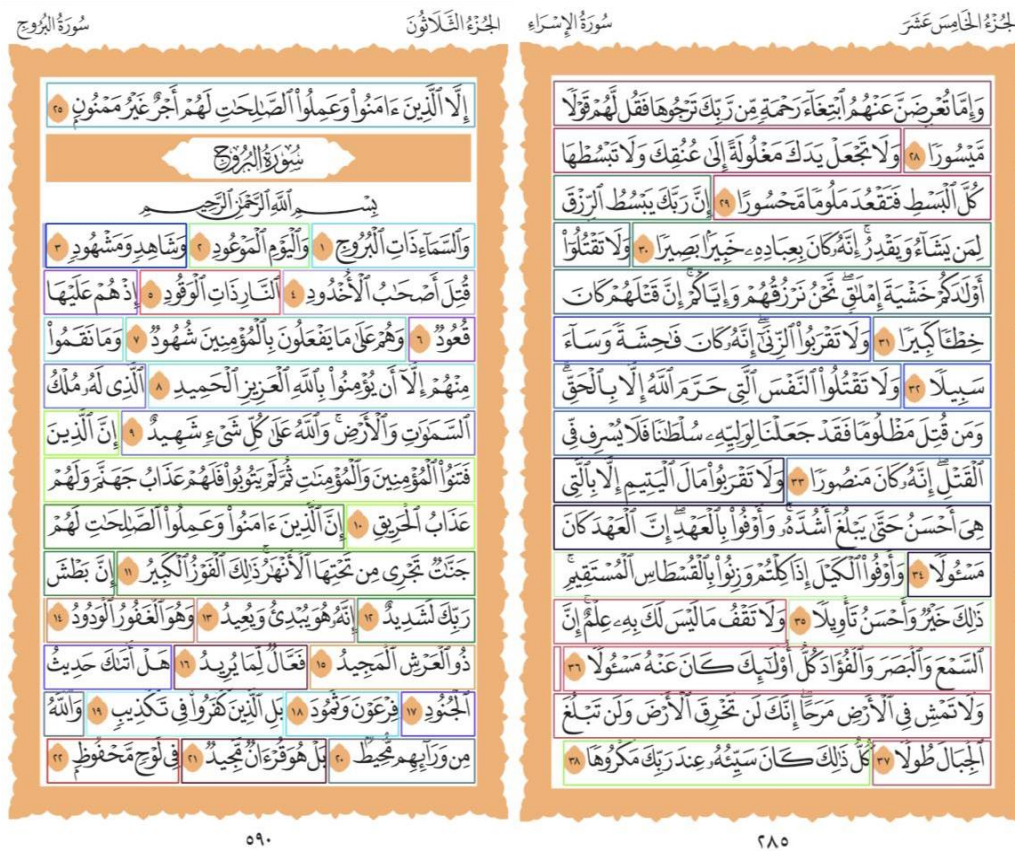 الجُزْءُ الخَامِسَ عَشَرَ
سُورَةُ الإِسْرَاءِ
وَإِمَّا تُعْرِضَنَّ عَنْهُمُ ٱبْتِغَآءَ رَحْمَةٍ مِّن رَّبِّكَ تَرْجُوهَا فَقُل لَّهُمْ قَوْلًا
مَّيْسُورًا ٢٨ وَلَا تَجْعَلْ يَدَكَ مَغْلُولَةً إِلَىٰ عُنُقِكَ وَلَا تَبْسُطْهَا
كُلَّ ٱلْبَسْطِ فَتَقْعُدَ مَلُومًا مَّحْسُورًا ٢٩ إِنَّ رَبَّكَ يَبْسُطُ ٱلرِّزْقَ
لِمَن يَشَآءُ وَيَقْدِرُ ۚ إِنَّهُۥ كَانَ بِعِبَادِهِۦ خَبِيرًۢا بَصِيرًا ٣٠ وَلَا تَقْتُلُوٓا۟
أَوْلَـٰدَكُمْ خَشْيَةَ إِمْلَـٰقٍ ۖ نَّحْنُ نَرْزُقُهُمْ وَإِيَّاكُمْ ۚ إِنَّ قَتْلَهُمْ كَانَ
خِطْـًٔا كَبِيرًا ٣١ وَلَا تَقْرَبُوا۟ ٱلزِّنَىٰٓ ۖ إِنَّهُۥ كَانَ فَـٰحِشَةً وَسَآءَ
سَبِيلًا ٣٢ وَلَا تَقْتُلُوا۟ ٱلنَّفْسَ ٱلَّتِى حَرَّمَ ٱللَّهُ إِلَّا بِٱلْحَقِّ ۗ
وَمَن قُتِلَ مَظْلُومًا فَقَدْ جَعَلْنَا لِوَلِيِّهِۦ سُلْطَـٰنًا فَلَا يُسْرِف فِّى
ٱلْقَتْلِ ۖ إِنَّهُۥ كَانَ مَنصُورًا ٣٣ وَلَا تَقْرَبُوا۟ مَالَ ٱلْيَتِيمِ إِلَّا بِٱلَّتِى
هِىَ أَحْسَنُ حَتَّىٰ يَبْلُغَ أَشُدَّهُۥ ۚ وَأَوْفُوا۟ بِٱلْعَهْدِ ۖ إِنَّ ٱلْعَهْدَ كَانَ
مَسْـُٔولًا ٣٤ وَأَوْفُوا۟ ٱلْكَيْلَ إِذَا كِلْتُمْ وَزِنُوا۟ بِٱلْقِسْطَاسِ ٱلْمُسْتَقِيمِ ۚ
ذَٰلِكَ خَيْرٌ وَأَحْسَنُ تَأْوِيلًا ٣٥ وَلَا تَقْفُ مَا لَيْسَ لَكَ بِهِۦ عِلْمٌ ۚ إِنَّ
ٱلسَّمْعَ وَٱلْبَصَرَ وَٱلْفُؤَادَ كُلُّ أُو۟لَـٰٓئِكَ كَانَ عَنْهُ مَسْـُٔولًا ٣٦
وَلَا تَمْشِ فِى ٱلْأَرْضِ مَرَحًا ۖ إِنَّكَ لَن تَخْرِقَ ٱلْأَرْضَ وَلَن تَبْلُغَ
ٱلْجِبَالَ طُولًا ٣٧ كُلُّ ذَٰلِكَ كَانَ سَيِّئُهُۥ عِندَ رَبِّكَ مَكْرُوهًا ٣٨
٢٨٥
الجُزْءُ الثَّلَاثُونَ
سُورَةُ البُرُوجِ
إِلَّا ٱلَّذِينَ ءَامَنُوا۟ وَعَمِلُوا۟ ٱلصَّـٰلِحَـٰتِ لَهُمْ أَجْرٌ غَيْرُ مَمْنُونٍۭ ٢٥
سُورَةُ البُرُوجِ
بِسْمِ ٱللَّهِ ٱلرَّحْمَـٰنِ ٱلرَّحِيمِ
وَٱلسَّمَآءِ ذَاتِ ٱلْبُرُوجِ ١ وَٱلْيَوْمِ ٱلْمَوْعُودِ ٢ وَشَاهِدٍ وَمَشْهُودٍ ٣
قُتِلَ أَصْحَـٰبُ ٱلْأُخْدُودِ ٤ ٱلنَّارِ ذَاتِ ٱلْوَقُودِ ٥ إِذْ هُمْ عَلَيْهَا
قُعُودٌ ٦ وَهُمْ عَلَىٰ مَا يَفْعَلُونَ بِٱلْمُؤْمِنِينَ شُهُودٌ ٧ وَمَا نَقَمُوا۟
مِنْهُمْ إِلَّآ أَن يُؤْمِنُوا۟ بِٱللَّهِ ٱلْعَزِيزِ ٱلْحَمِيدِ ٨ ٱلَّذِى لَهُۥ مُلْكُ
ٱلسَّمَـٰوَٰتِ وَٱلْأَرْضِ ۚ وَٱللَّهُ عَلَىٰ كُلِّ شَىْءٍ شَهِيدٌ ٩ إِنَّ ٱلَّذِينَ
فَتَنُوا۟ ٱلْمُؤْمِنِينَ وَٱلْمُؤْمِنَـٰتِ ثُمَّ لَمْ يَتُوبُوا۟ فَلَهُمْ عَذَابُ جَهَنَّمَ وَلَهُمْ
عَذَابُ ٱلْحَرِيقِ ١٠ إِنَّ ٱلَّذِينَ ءَامَنُوا۟ وَعَمِلُوا۟ ٱلصَّـٰلِحَـٰتِ لَهُمْ
جَنَّـٰتٌ تَجْرِى مِن تَحْتِهَا ٱلْأَنْهَـٰرُ ۚ ذَٰلِكَ ٱلْفَوْزُ ٱلْكَبِيرُ ١١ إِنَّ بَطْشَ
رَبِّكَ لَشَدِيدٌ ١٢ إِنَّهُۥ هُوَ يُبْدِئُ وَيُعِيدُ ١٣ وَهُوَ ٱلْغَفُورُ ٱلْوَدُودُ ١٤
ذُو ٱلْعَرْشِ ٱلْمَجِيدُ ١٥ فَعَّالٌ لِّمَا يُرِيدُ ١٦ هَلْ أَتَىٰكَ حَدِيثُ
ٱلْجُنُودِ ١٧ فِرْعَوْنَ وَثَمُودَ ١٨ بَلِ ٱلَّذِينَ كَفَرُوا۟ فِى تَكْذِيبٍ ١٩ وَٱللَّهُ
مِن وَرَآئِهِم مُّحِيطٌۢ ٢٠ بَلْ هُوَ قُرْءَانٌ مَّجِيدٌ ٢١ فِى لَوْحٍ مَّحْفُوظٍۭ ٢٢
٥٩٠